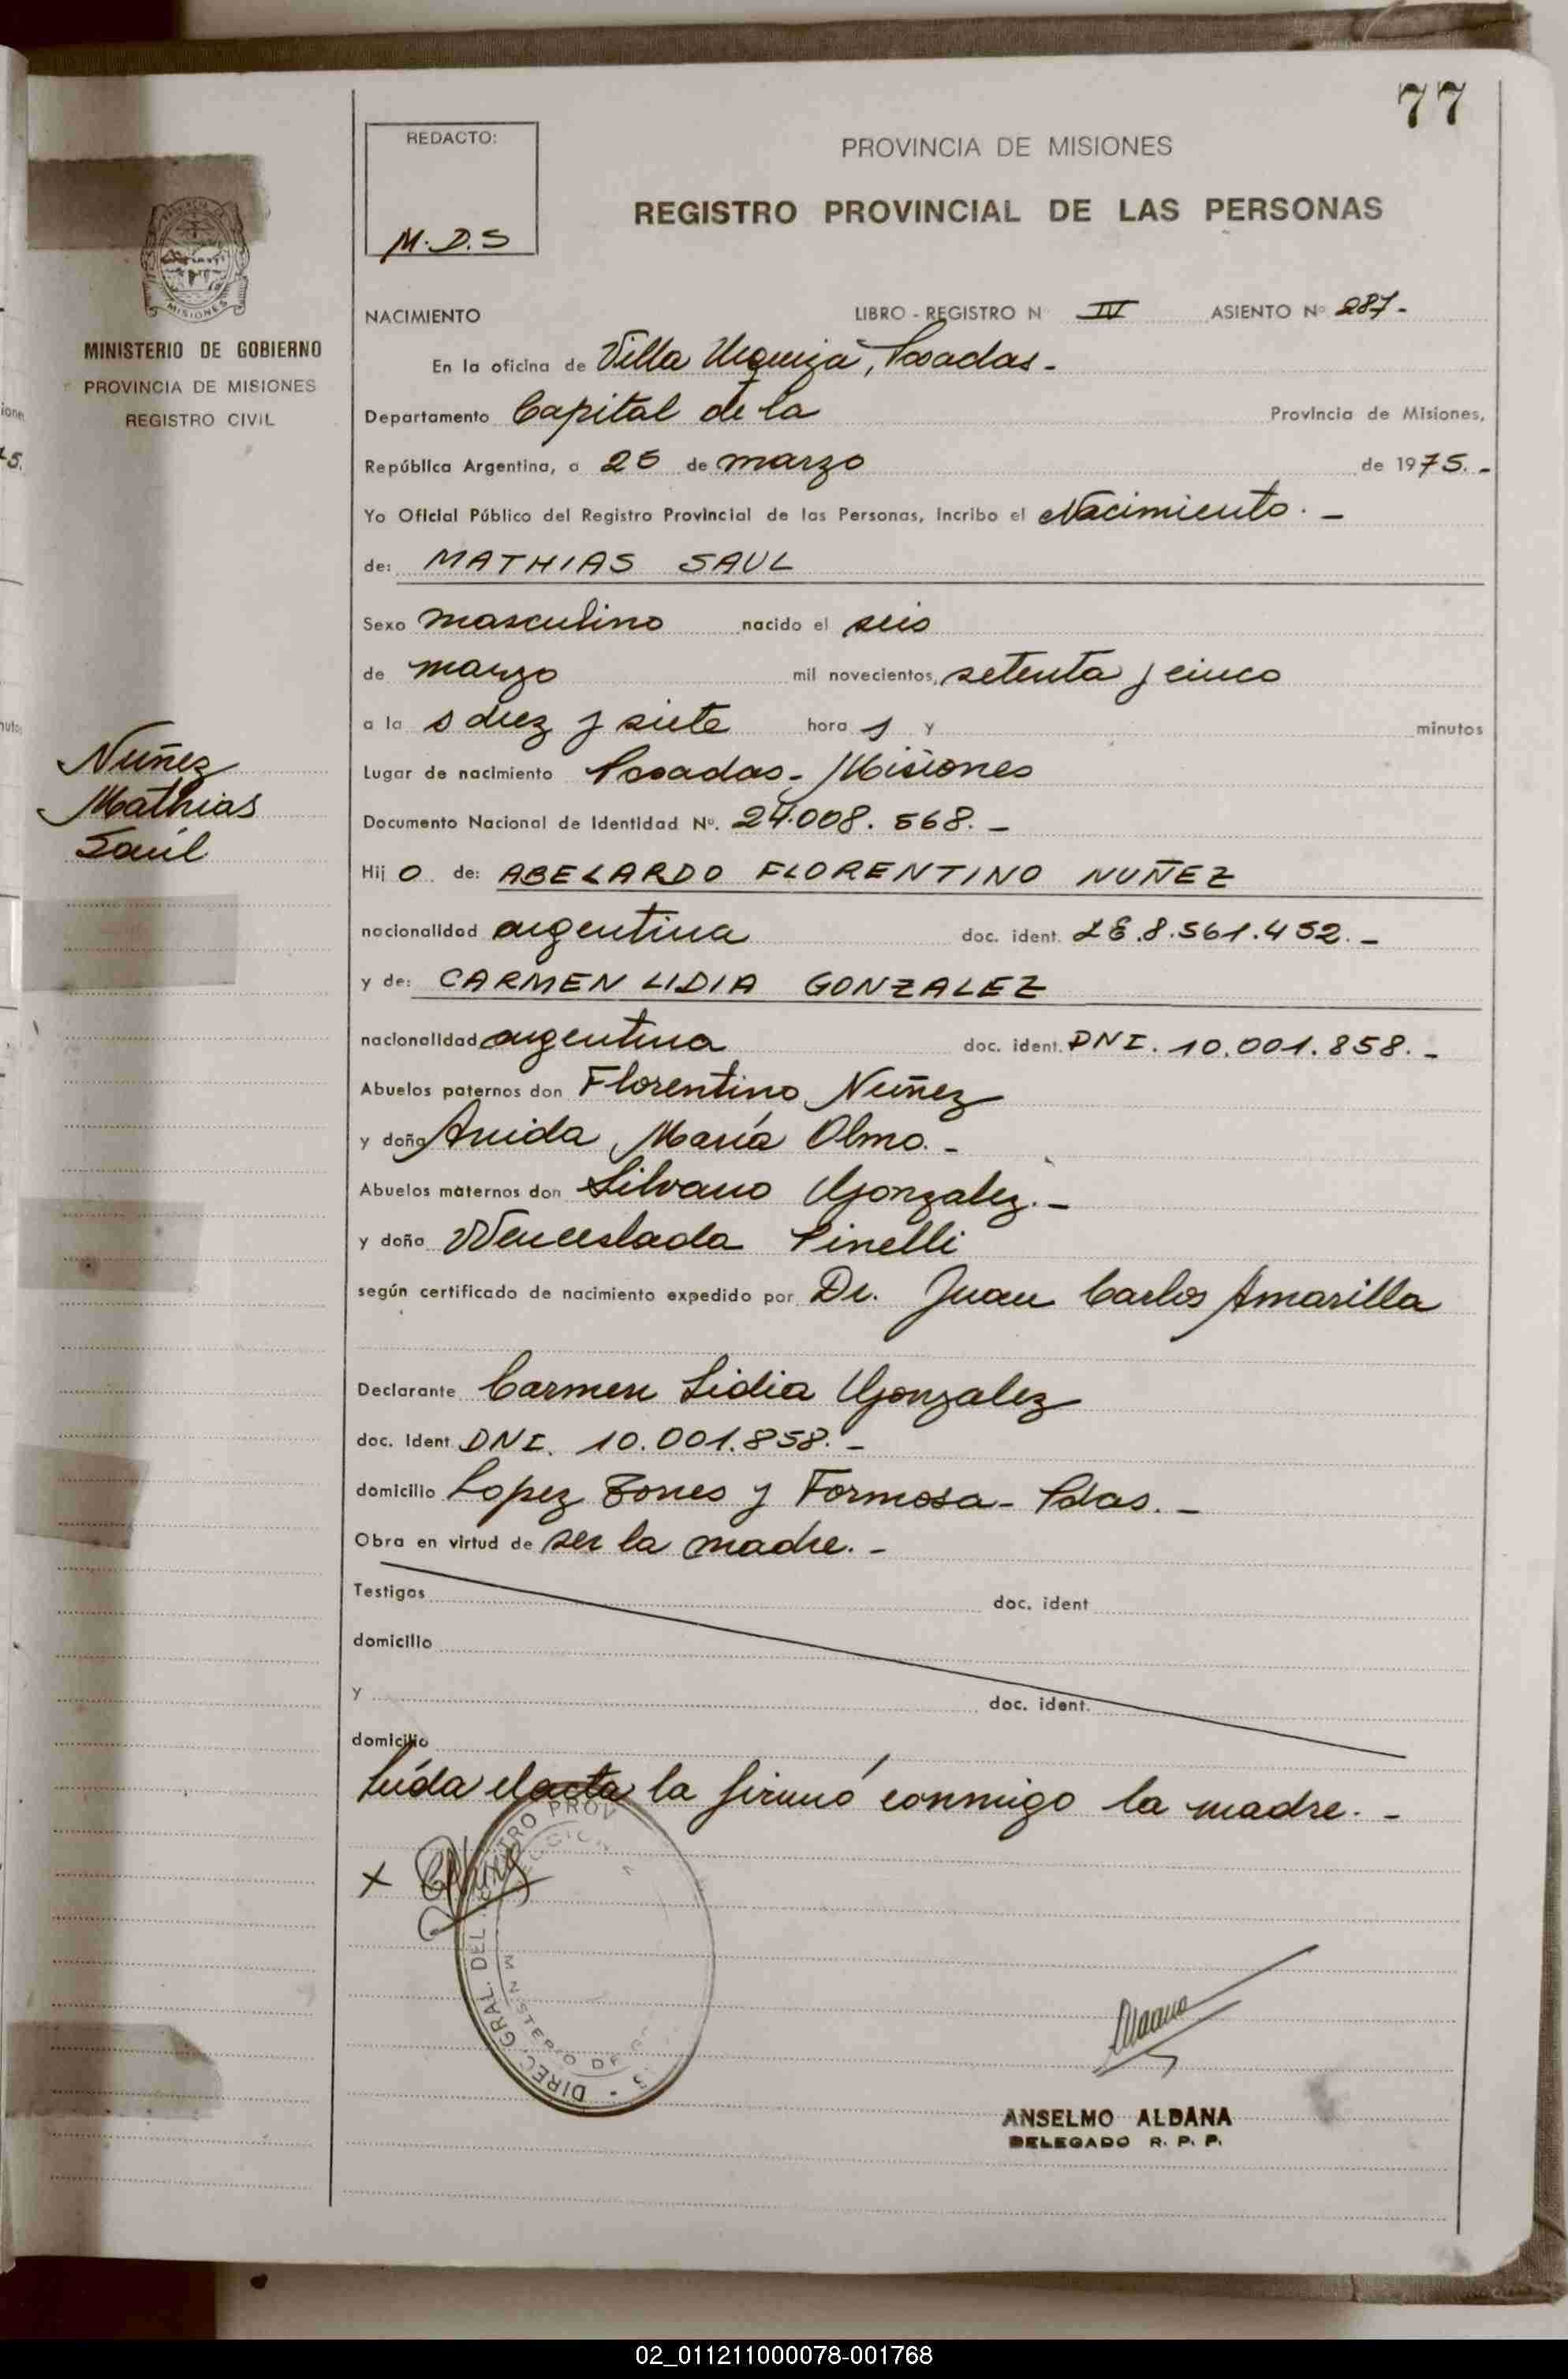 77
REDACTO:
M.D.S
PROVINCIA DE MISIONES
REGISTRO PROVINCIAL DE LAS PERSONAS
MISIONES
MINISTERIO DE GOBIERNO
PROVINCIA DE MISIONES
REGISTRO CIVIL
NACIMIENTO LIBRO - REGISTRO N IV ASIENTO Nº 287.-
En la oficina de Villa Urquiza, Posadas.-
Departamento Capital de la Provincia de Misiones,
República Argentina, a 26 de marzo de 1975.-
Yo Oficial Público del Registro Provincial de las Personas, incribo el Nacimiento.-
de: MATHIAS SAUL
Sexo masculino nacido el seis
de marzo mil novecientos, setenta y cinco
a la s diez y siete hora s y minutos
Nuñez
Mathias
Saúl
Lugar de nacimiento Posadas - Misiones
Documento Nacional de Identidad Nº. 24.008.568.-
Hij o de: ABELARDO FLORENTINO NUÑEZ
nacionalidad argentina doc. ident. LE.8.561.452.-
y de: CARMEN LIDIA GONZALEZ
nacionalidad argentina doc. ident. DNI. 10.001.858.-
Abuelos paternos don Florentino Nuñez
y doña María Olmo.-
Abuelos maternos don Silvano Gonzalez.-
y doña Wenceslada Pinelli
según certificado de nacimiento expedido por Dr. Juan Carlos Amarilla
Declarante Carmen Lidia Gonzalez
doc. Ident DNI. 10.001.858.-
domicilio Lopez Torres y Formosa - Pdas.-
Obra en virtud de ser la madre.-
Testigos doc. ident
domicilio
y doc. ident.
domicilio
Leída el acta la firmó conmigo la madre.-
x
DIREC. GRAL. DEL REGISTRO PROV
MINISTERIO DE
ANSELMO ALDANA
DELEGADO R. P. P.
02_011211000078-001768